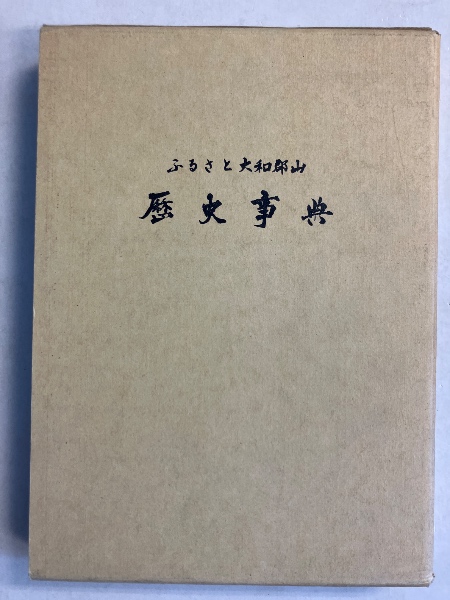 ふるさと大和郡山
歴史事典